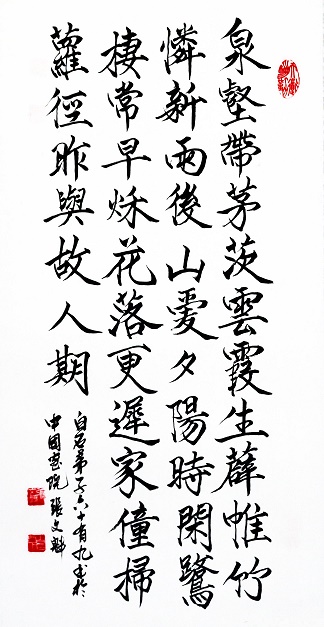 泉壑帶茅茨雲霞生薜帷竹
憐新雨後山愛夕陽時閑鷺
棲常早秌花落更遲家僮掃
蘿徑昨與故人期
六十有九書於
中國畫院張文魁